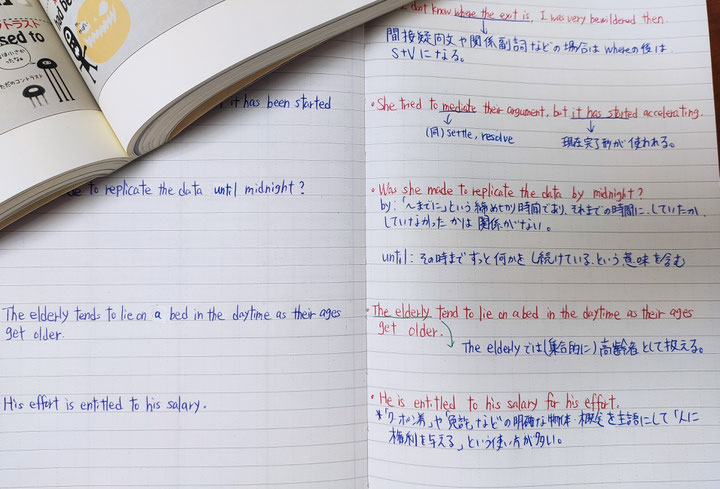 トラスト
sed to
ただのコントラスト
it has been started
to replicate the data until midnight?
The elderly tends to lie on a bed in the daytime as their ages
get older.
His effort is entitled to his salary.
not know where the exit is, I was very bewildered then.
間接疑問文や関係副詞などの場合は whereの後は
S+Vになる。
• She tried to mediate their argument, but it has started accelerating.
(同) settle, resolve
現在完了形が使われる。
• Was she made to replicate the data by midnight?
by:「〜までに」という締め切り時間であり、それまでの時間に、していたか、
していなかったかは関係がない。
until: その時までずっと何かをし続けている、という意味を含む
• The elderly tend to lie on a bed in the daytime as their ages
get older.
The elderlyでは(集合的に)高齢者として扱える。
• He is entitled to his salary for his effort.
*「クーポン券」や「免許」などの明確な物体・概念を主語にして「人に
権利を与える」という使い方が多い。